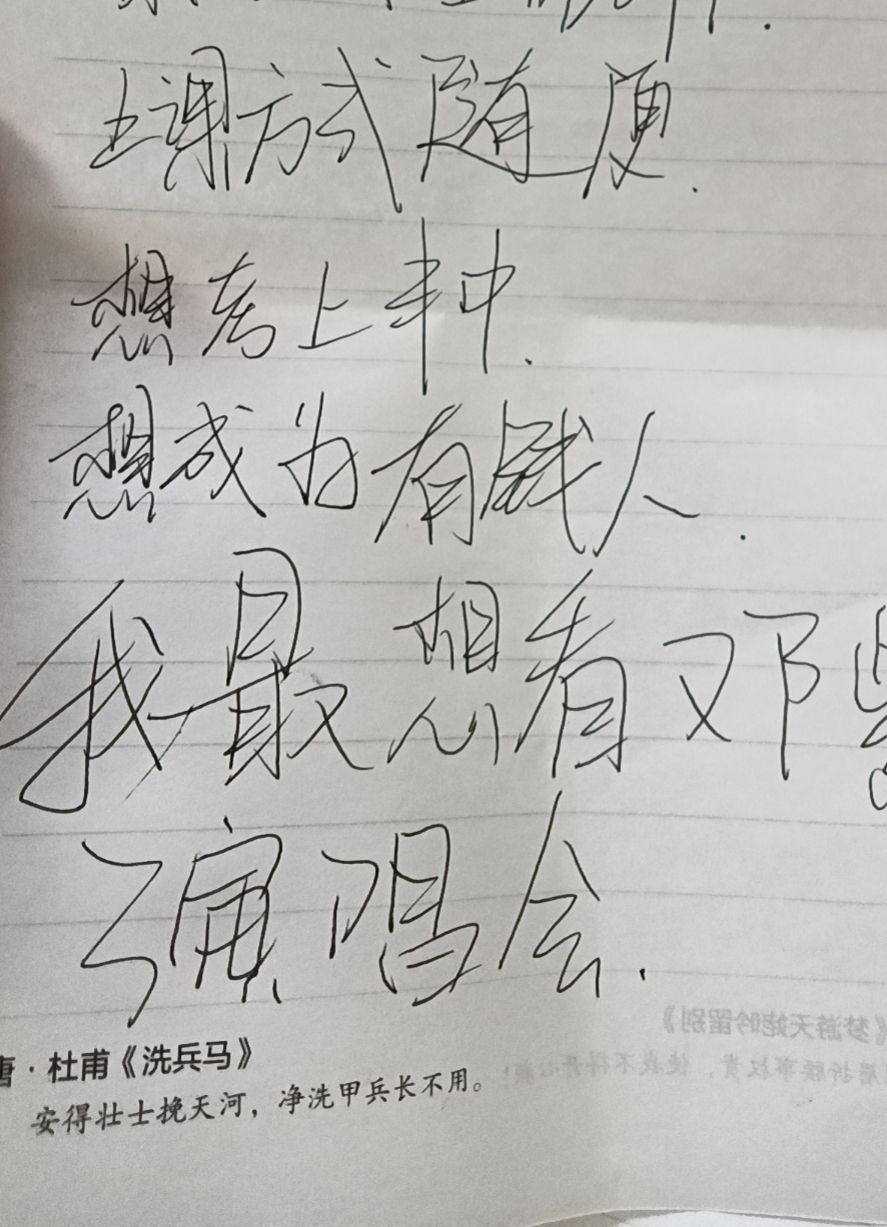 上课方式随便.
想考上丰中.
想成为有钱人.
我最想看邓紫
演唱会.
唐·杜甫《洗兵马》
安得壮士挽天河，净洗甲兵长不用。
《梦游天姥吟留别》
眉折腰事权贵，使我不得开心颜！